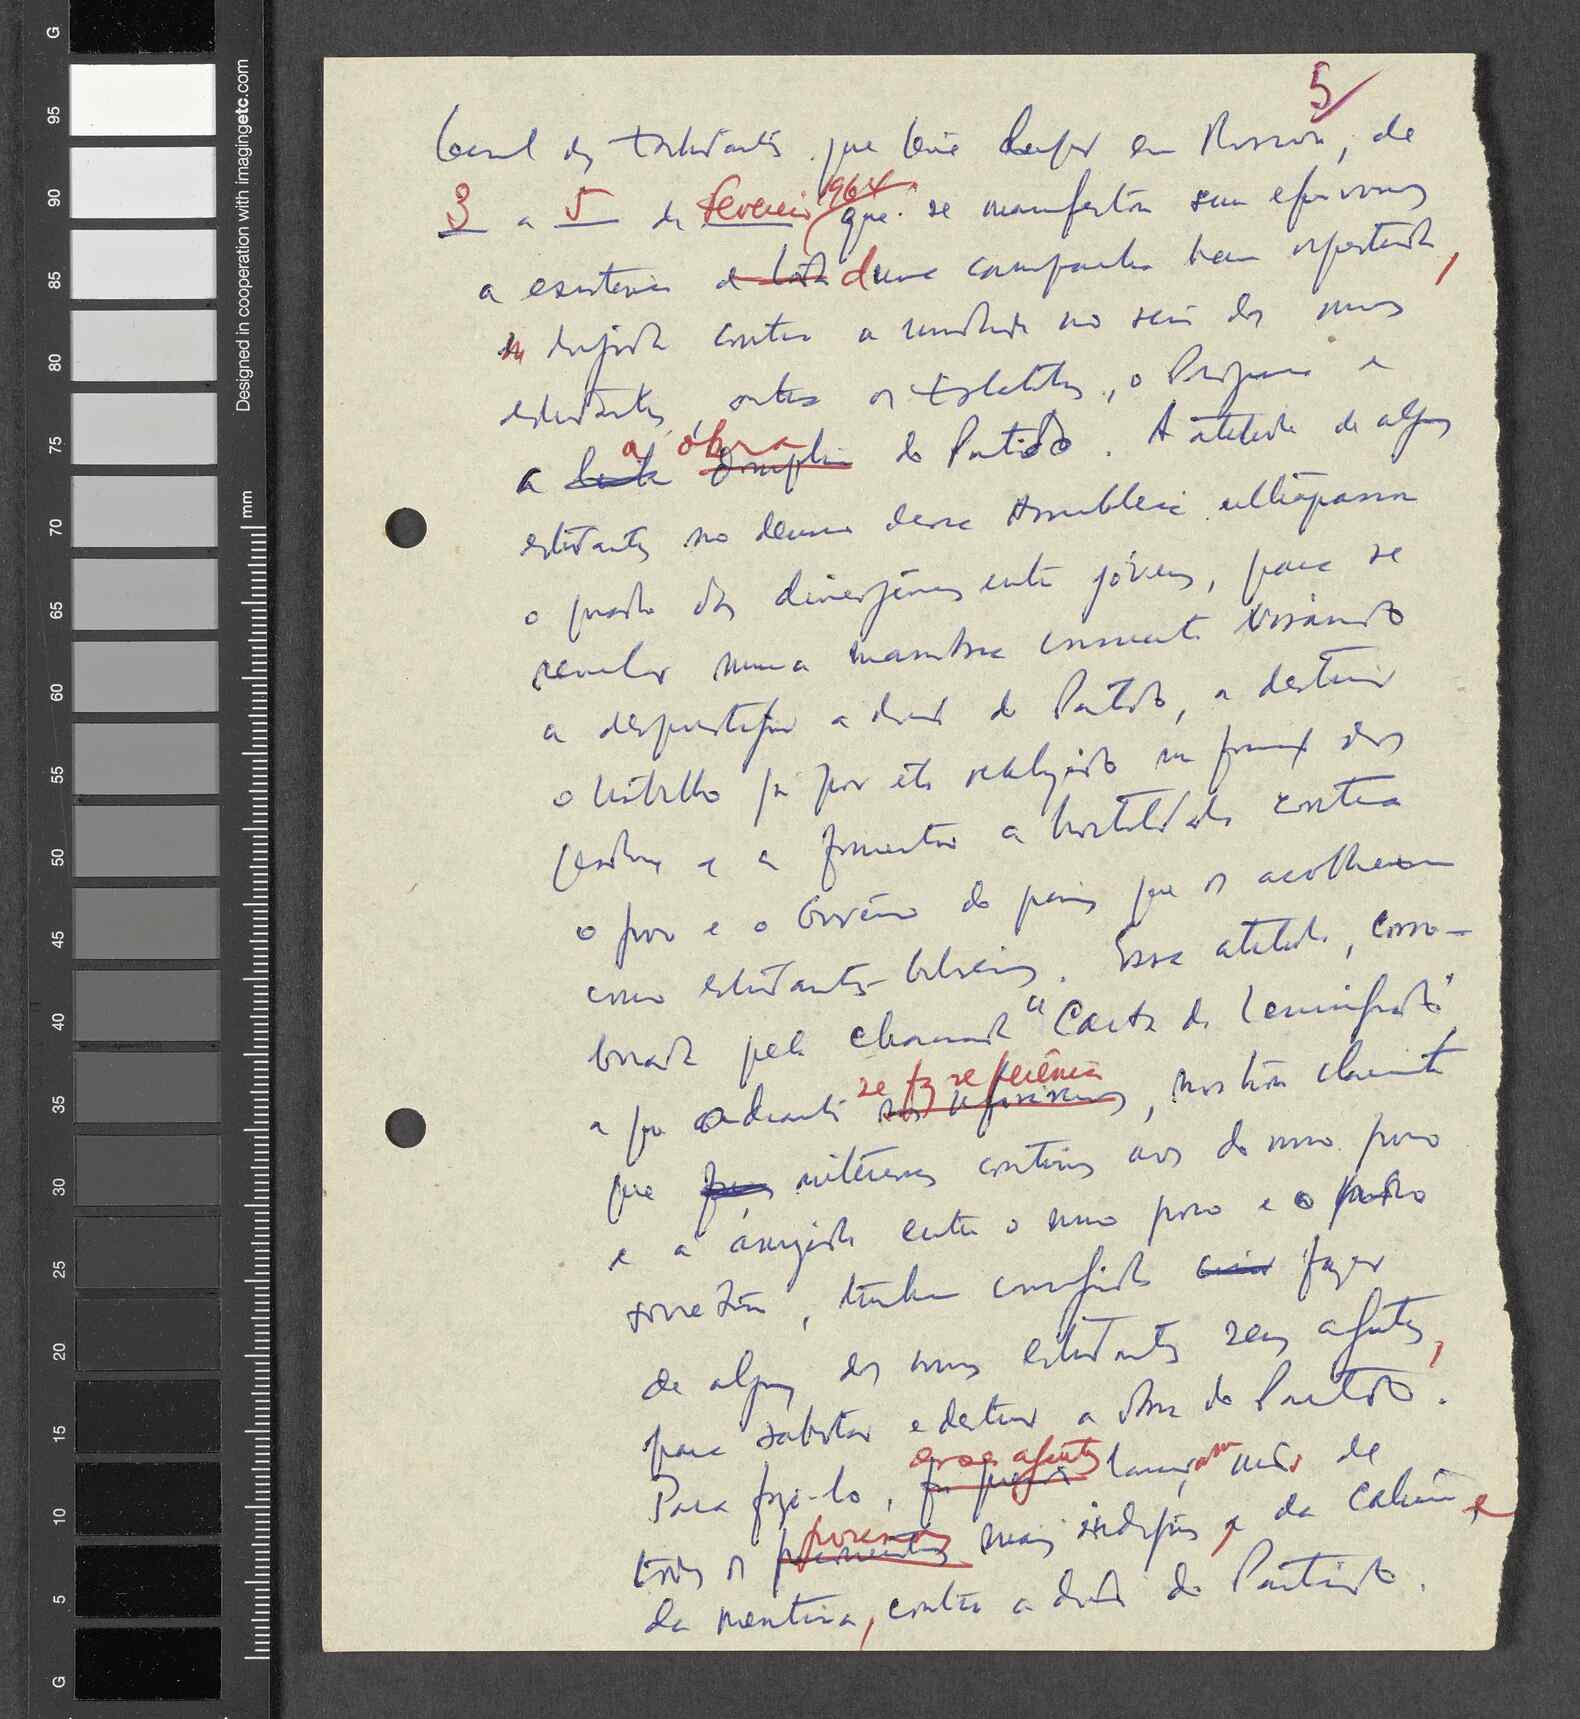 5
Geral dos Estudantes que teve lugar em Moscou, de
3 a 5 de fevereiro 1964 que se manifestou sem equívocos
a existência duma campanha bem orquestrada,
dirigida contra a unidade no seio dos nossos
estudantes, contra os Estatutos, o Programa e
a obra do Partido. A atitude de alguns
estudantes no decurso dessa Assembleia ultrapassou
o quadro das divergências entre jóvens, para se
revelar numa manobra consciente visando
a desprestigiar a direcção do Partido, a destruir
o trabalho já por êle realizado na formação dos
quadros e a fomentar a hostilidade contra
o povo e o Govêrno do país que os acolheram
como estudantes-bolseiros. Essa atitude, corro-
borada pela chamada "Carta de Leninegrado"
a que adiante se faz referência, mostrou claramente
que interesses contrários aos do nosso povo
e à amizade entre o nosso povo e o povo
soviético, tinham conseguido fazer
de alguns dos nossos estudantes seus agentes,
para sabotar e destruir a obra do Partido.
Para fazê-lo, esses agentes lançaram mão de
todos os processos mais indignos, da calúnia e
da mentira, contra a direcção do Partido.
G
95
90
85
80
75
70
65
60
55
50
45
40
35
30
25
20
15
10
5
G
mm
Designed in cooperation with imagingetc.com